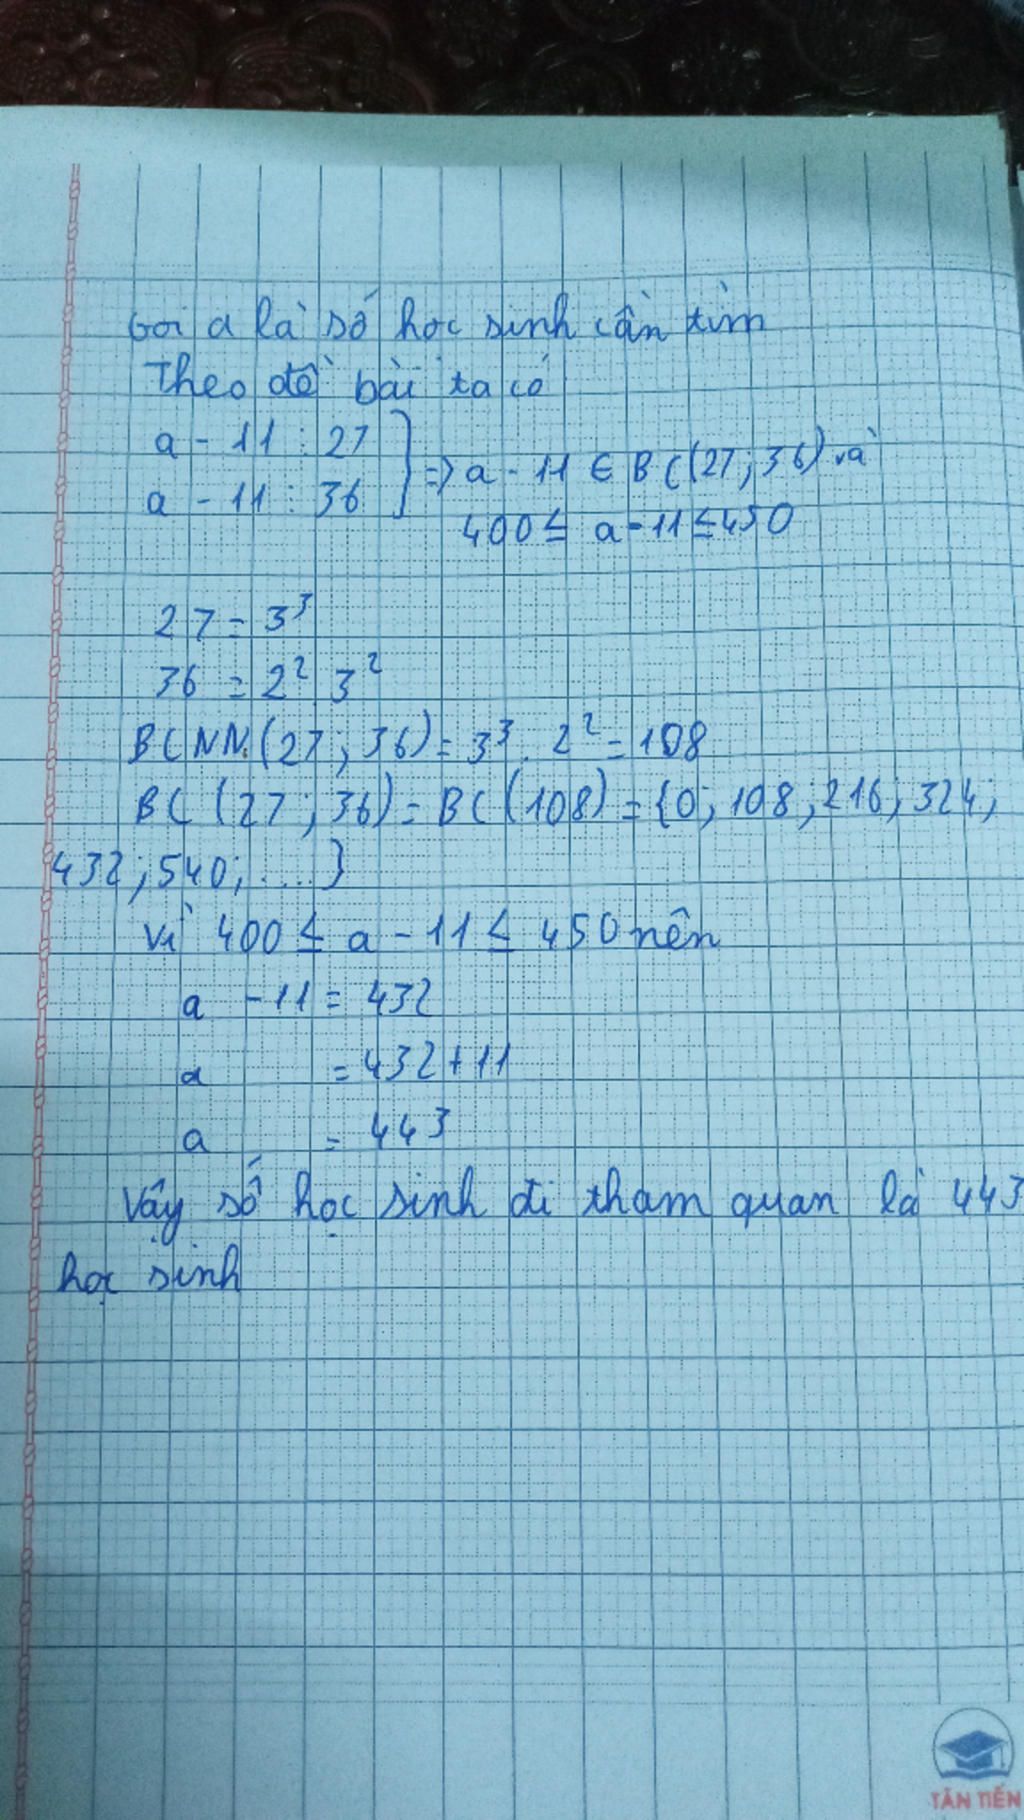 Gọi a là số học sinh cần tìm
Theo đề bài ta có
a - 11 : 27
a - 11 : 36
} => a - 11 ∈ BC(27; 36) và
400 ≤ a - 11 ≤ 450
27 = 3³
36 = 2² . 3²
BCNN(27; 36) = 3³ . 2² = 108
BC (27; 36) = BC(108) = {0; 108; 216; 324;
432; 540; ....}
Vì 400 ≤ a - 11 ≤ 450 nên
a - 11 = 432
a = 432 + 11
a = 443
Vậy số học sinh đi tham quan là 443
học sinh
TÂN TIẾN